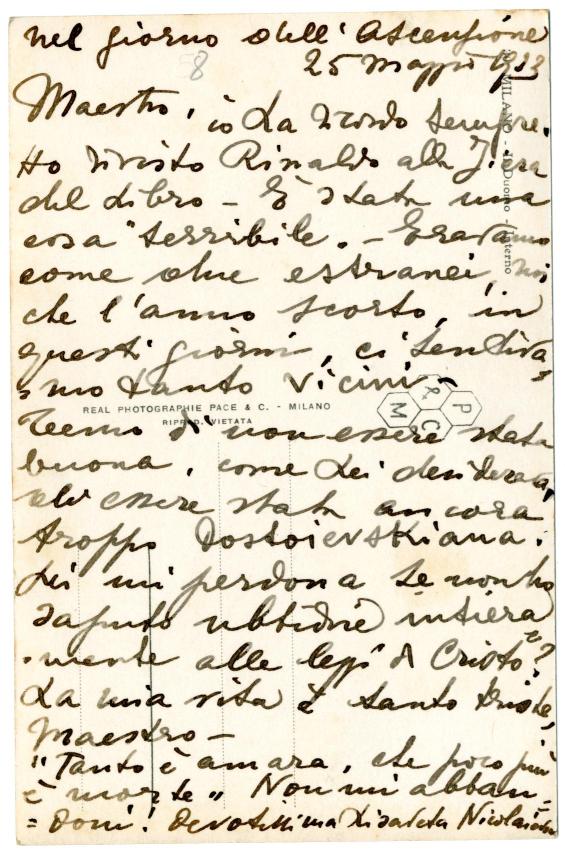 nel giorno dell'Ascensione
25 Maggio
8
Maestro, io La ricordo sempre.
Ho rivisto Rinaldo alla Fiera
del Libro - È stata una
cosa terribile. - Eravamo
come due estranei, noi
che l'anno scorso, in
questi giorni, ci sentiva=
=mo tanto vicini.
REAL PHOTOGRAPHIE PACE & C. - MILANO
RIPROD. VIETATA
P & C M
MILANO - Il Duomo - Interno
Temo di non essere stata
buona, come Lei desiderava,
di essere stata ancora
troppo Dostoievskiana.
Lei mi perdona se non ho
saputo ubbidire intiera=
=mente alle leggi di Cristo?
La mia vita è tanto triste,
Maestro -
"Tanto è amara, che poco più
è morte" Non mi abban=
=doni! Devotissima Lisaveta